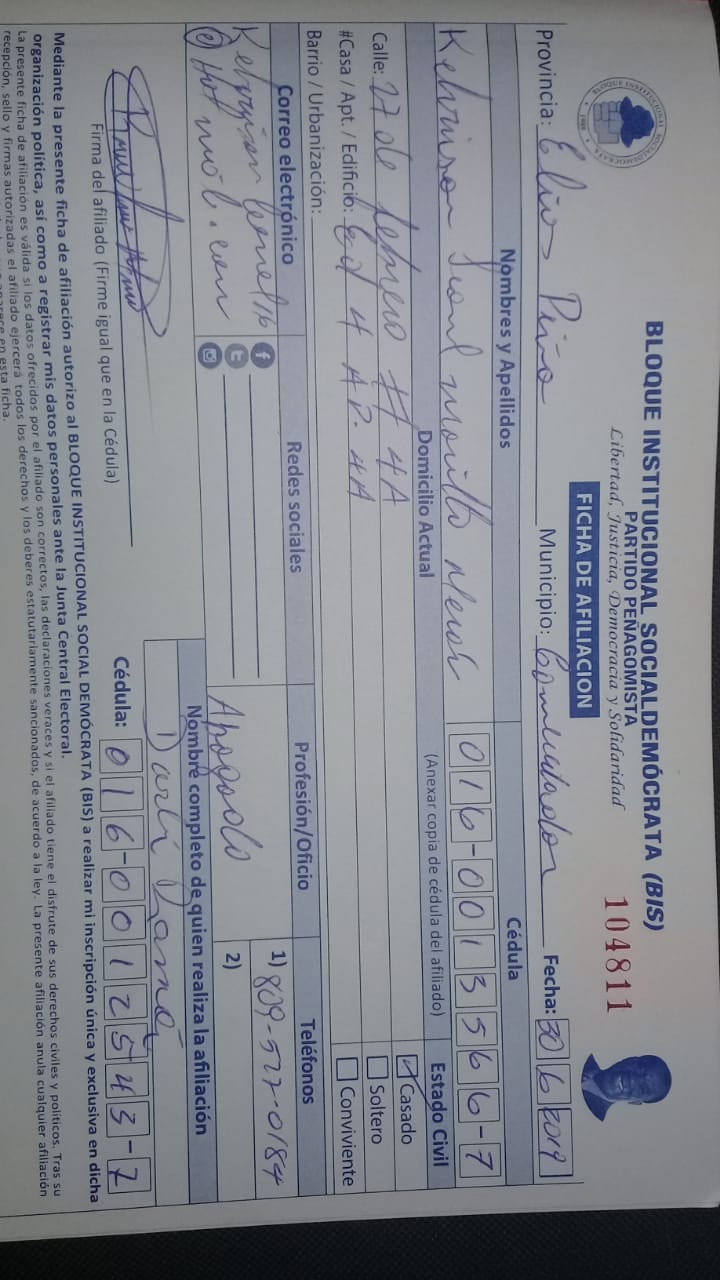 BLOQUE INSTITUCIONAL SOCIALDEMÓCRATA
1989
BLOQUE INSTITUCIONAL SOCIALDEMÓCRATA (BIS)
PARTIDO PEÑAGOMISTA
Libertad, Justicia, Democracia y Solidaridad
104811
FICHA DE AFILIACION
Provincia: Elias Piña Municipio: Comendador Fecha: 30 6 2019
Nombres y Apellidos Cédula
016-0013566-7
Domicilio Actual (Anexar copia de cédula del afiliado) Estado Civil
Calle: 27 de febrero # 4A
Casado
#Casa / Apt. / Edificio: Ed 4 AP. 4A
Soltero
Barrio / Urbanización:
Conviviente
Correo electrónico Redes sociales Profesión/Oficio Teléfonos
@ Hotmail.com
Abogado
1) 809-527-0184
2)
Nombre completo de quien realiza la afiliación
Firma del afiliado (Firme igual que en la Cédula)
Cédula: 016-0012543-7
Mediante la presente ficha de afiliación autorizo al BLOQUE INSTITUCIONAL SOCIAL DEMÓCRATA (BIS) a realizar mi inscripción única y exclusiva en dicha
organización política, así como a registrar mis datos personales ante la Junta Central Electoral.
La presente ficha de afiliación es válida si los datos ofrecidos por el afiliado son correctos, las declaraciones veraces y si el afiliado tiene el disfrute de sus derechos civiles y políticos. Tras su
recepción, sello y firmas autorizadas el afiliado ejercerá todos los derechos y los deberes estatutariamente sancionados, de acuerdo a la ley. La presente afiliación anula cualquier afiliación
aparece en esta ficha.